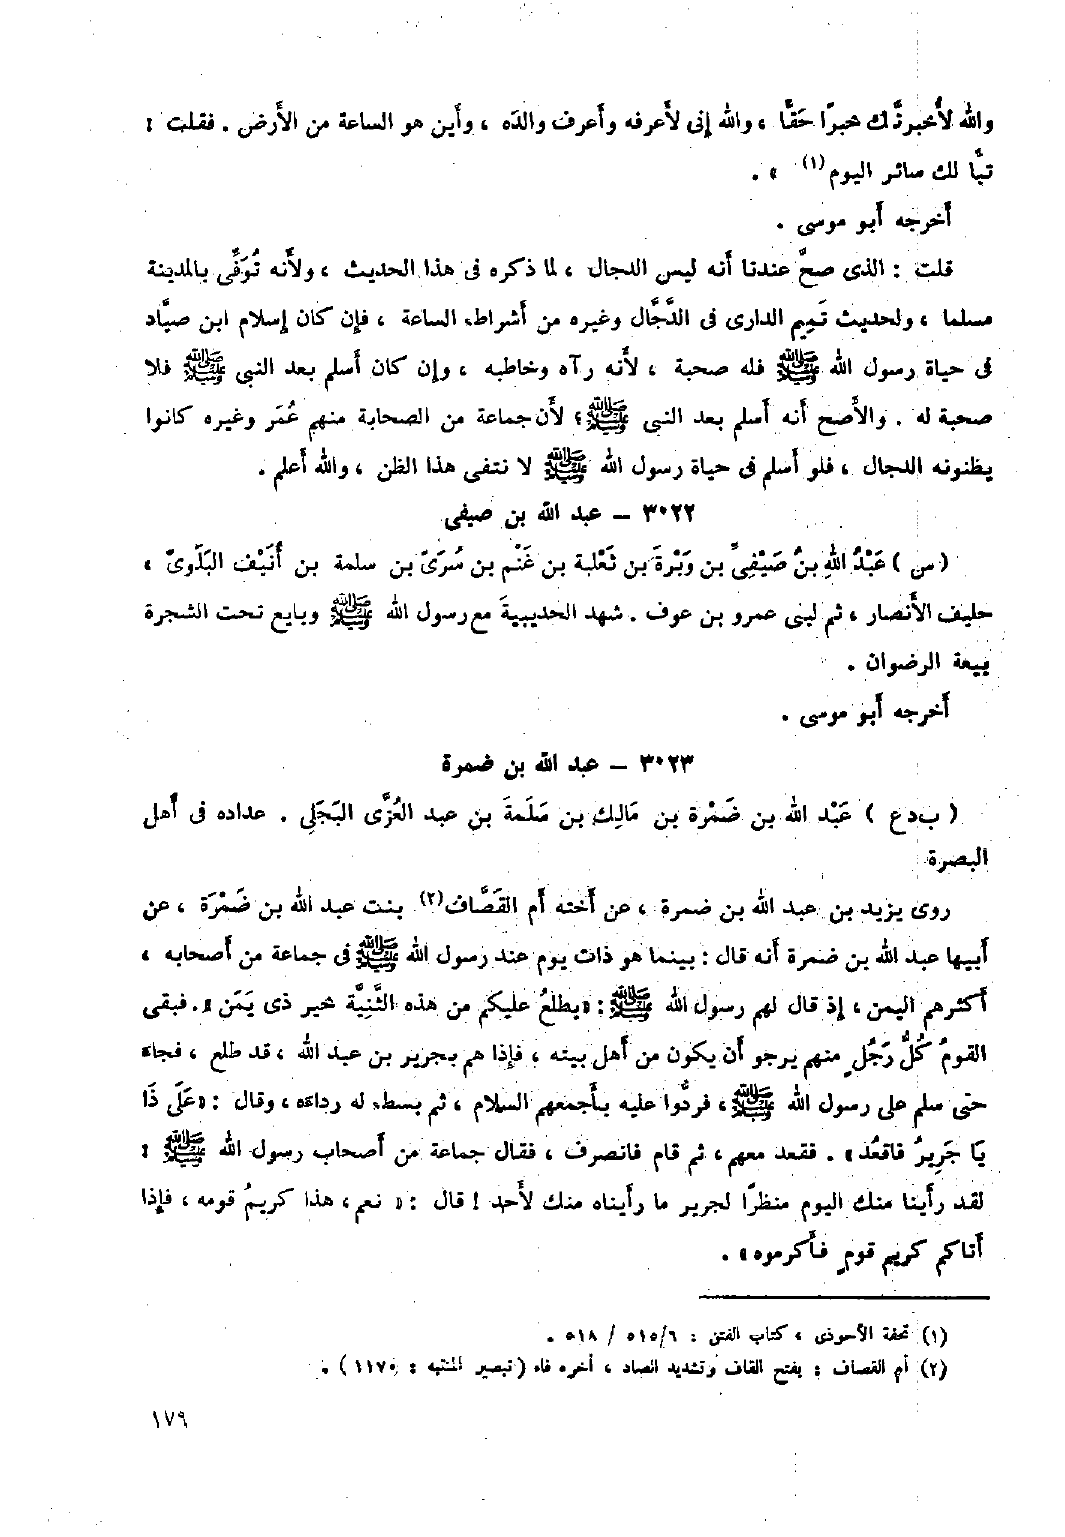 والله لأُخبرنَّك خبرًا حَقًّا ، والله إنى لأَعرفه وأَعرف والدَه ، وأَين هو الساعة من الأَرض . فقلت :
تبًّا لك سائر اليوم (١) » .
أَخرجه أَبو موسى .
قلت : الذى صحَّ عندنا أَنه ليس الدجال ، لما ذكره فى هذا الحديث ، ولأَنه تُوُفِّى بالمدينة
مسلما ، ولحديث تَمِيم الدارى فى الدَّجَّال وغيره من أَشراط الساعة ، فإِن كان إِسلام ابن صيَّاد
فى حياة رسول الله ﷺ فله صحبة ، لأَنه رآه وخاطبه ، وإِن كان أَسلم بعد النبى ﷺ فلا
صحبة له . والأَصح أَنه أَسلم بعد النبى ﷺ ؛ لأَن جماعة من الصحابة منهم عُمَر وغيره كانوا
يظنونه الدجال ، فلو أَسلم فى حياة رسول الله ﷺ لا نتفى هذا الظن ، والله أَعلم .
٣٠٢٢ – عبد الله بن صيفى
( س ) عَبْدُ اللهِ بنُ صَيْفِىِّ بن وَبْرةَ بن ثَعْلبة بن غَنْم بن سُرَىّ بن سلمة بن أُنَيْف البَلَوىّ ،
حليف الأَنصار ، ثم لبنى عمرو بن عوف . شهد الحديبيةَ مع رسول الله ﷺ وبايع تحت الشجرة
بيعة الرضوان .
أَخرجه أَبو موسى .
٣٠٢٣ – عبد الله بن ضمرة
( ب د ع ) عَبْد الله بن ضَمْرة بن مَالِك بن سَلَمةَ بن عبد العُزَّى البَجَلِي . عداده فى أَهل
البصرة
روى يزيد بن عبد الله بن ضمرة ، عن أَخته أم القَصَّاف (٢) بنت عبد الله بن ضَمْرَة ، عن
أَبيها عبد الله بن ضمرة أَنه قال : بينما هو ذات يوم عند رسول الله ﷺ فى جماعة من أَصحابه ،
أَكثرهم اليمن ، إِذ قال لهم رسول الله ﷺ : «يطلعُ عليكم من هذه الثَّنِيَّة خير ذى يَمَن » . فبقى
القومُ كُلُّ رَجُلٍ منهم يرجو أَن يكون من أَهل بيته ، فإِذا هم بجرير بن عبد الله ، قد طلع ، فجاء
حتى سلم على رسول الله ﷺ ، فردُّوا عليه بأَجمعهم السلام ، ثم بسط له رداءه ، وقال : «عَلَى ذَا
يَا جَرِيرُ فَاقعُد» . فقعد معهم ، ثم قام فانصرف ، فقال جماعة من أَصحاب رسول الله ﷺ :
لقد رأَينا منك اليوم منظرًا لجرير ما رأَيناه منك لأَحد ! قال : « نعم ، هذا كريمُ قومه ، فإِذا
أَتاكم كريم قوم فأَكرموه» .
(١) تحفة الأحوذى ، كتاب الفتن : ٦/٥١٥ / ٥١٨ .
(٢) أم القصاف : بفتح القاف وتشديد الصاد ، آخره فاء (تبصير المنتبه : ١١٧٥) .
١٧٩